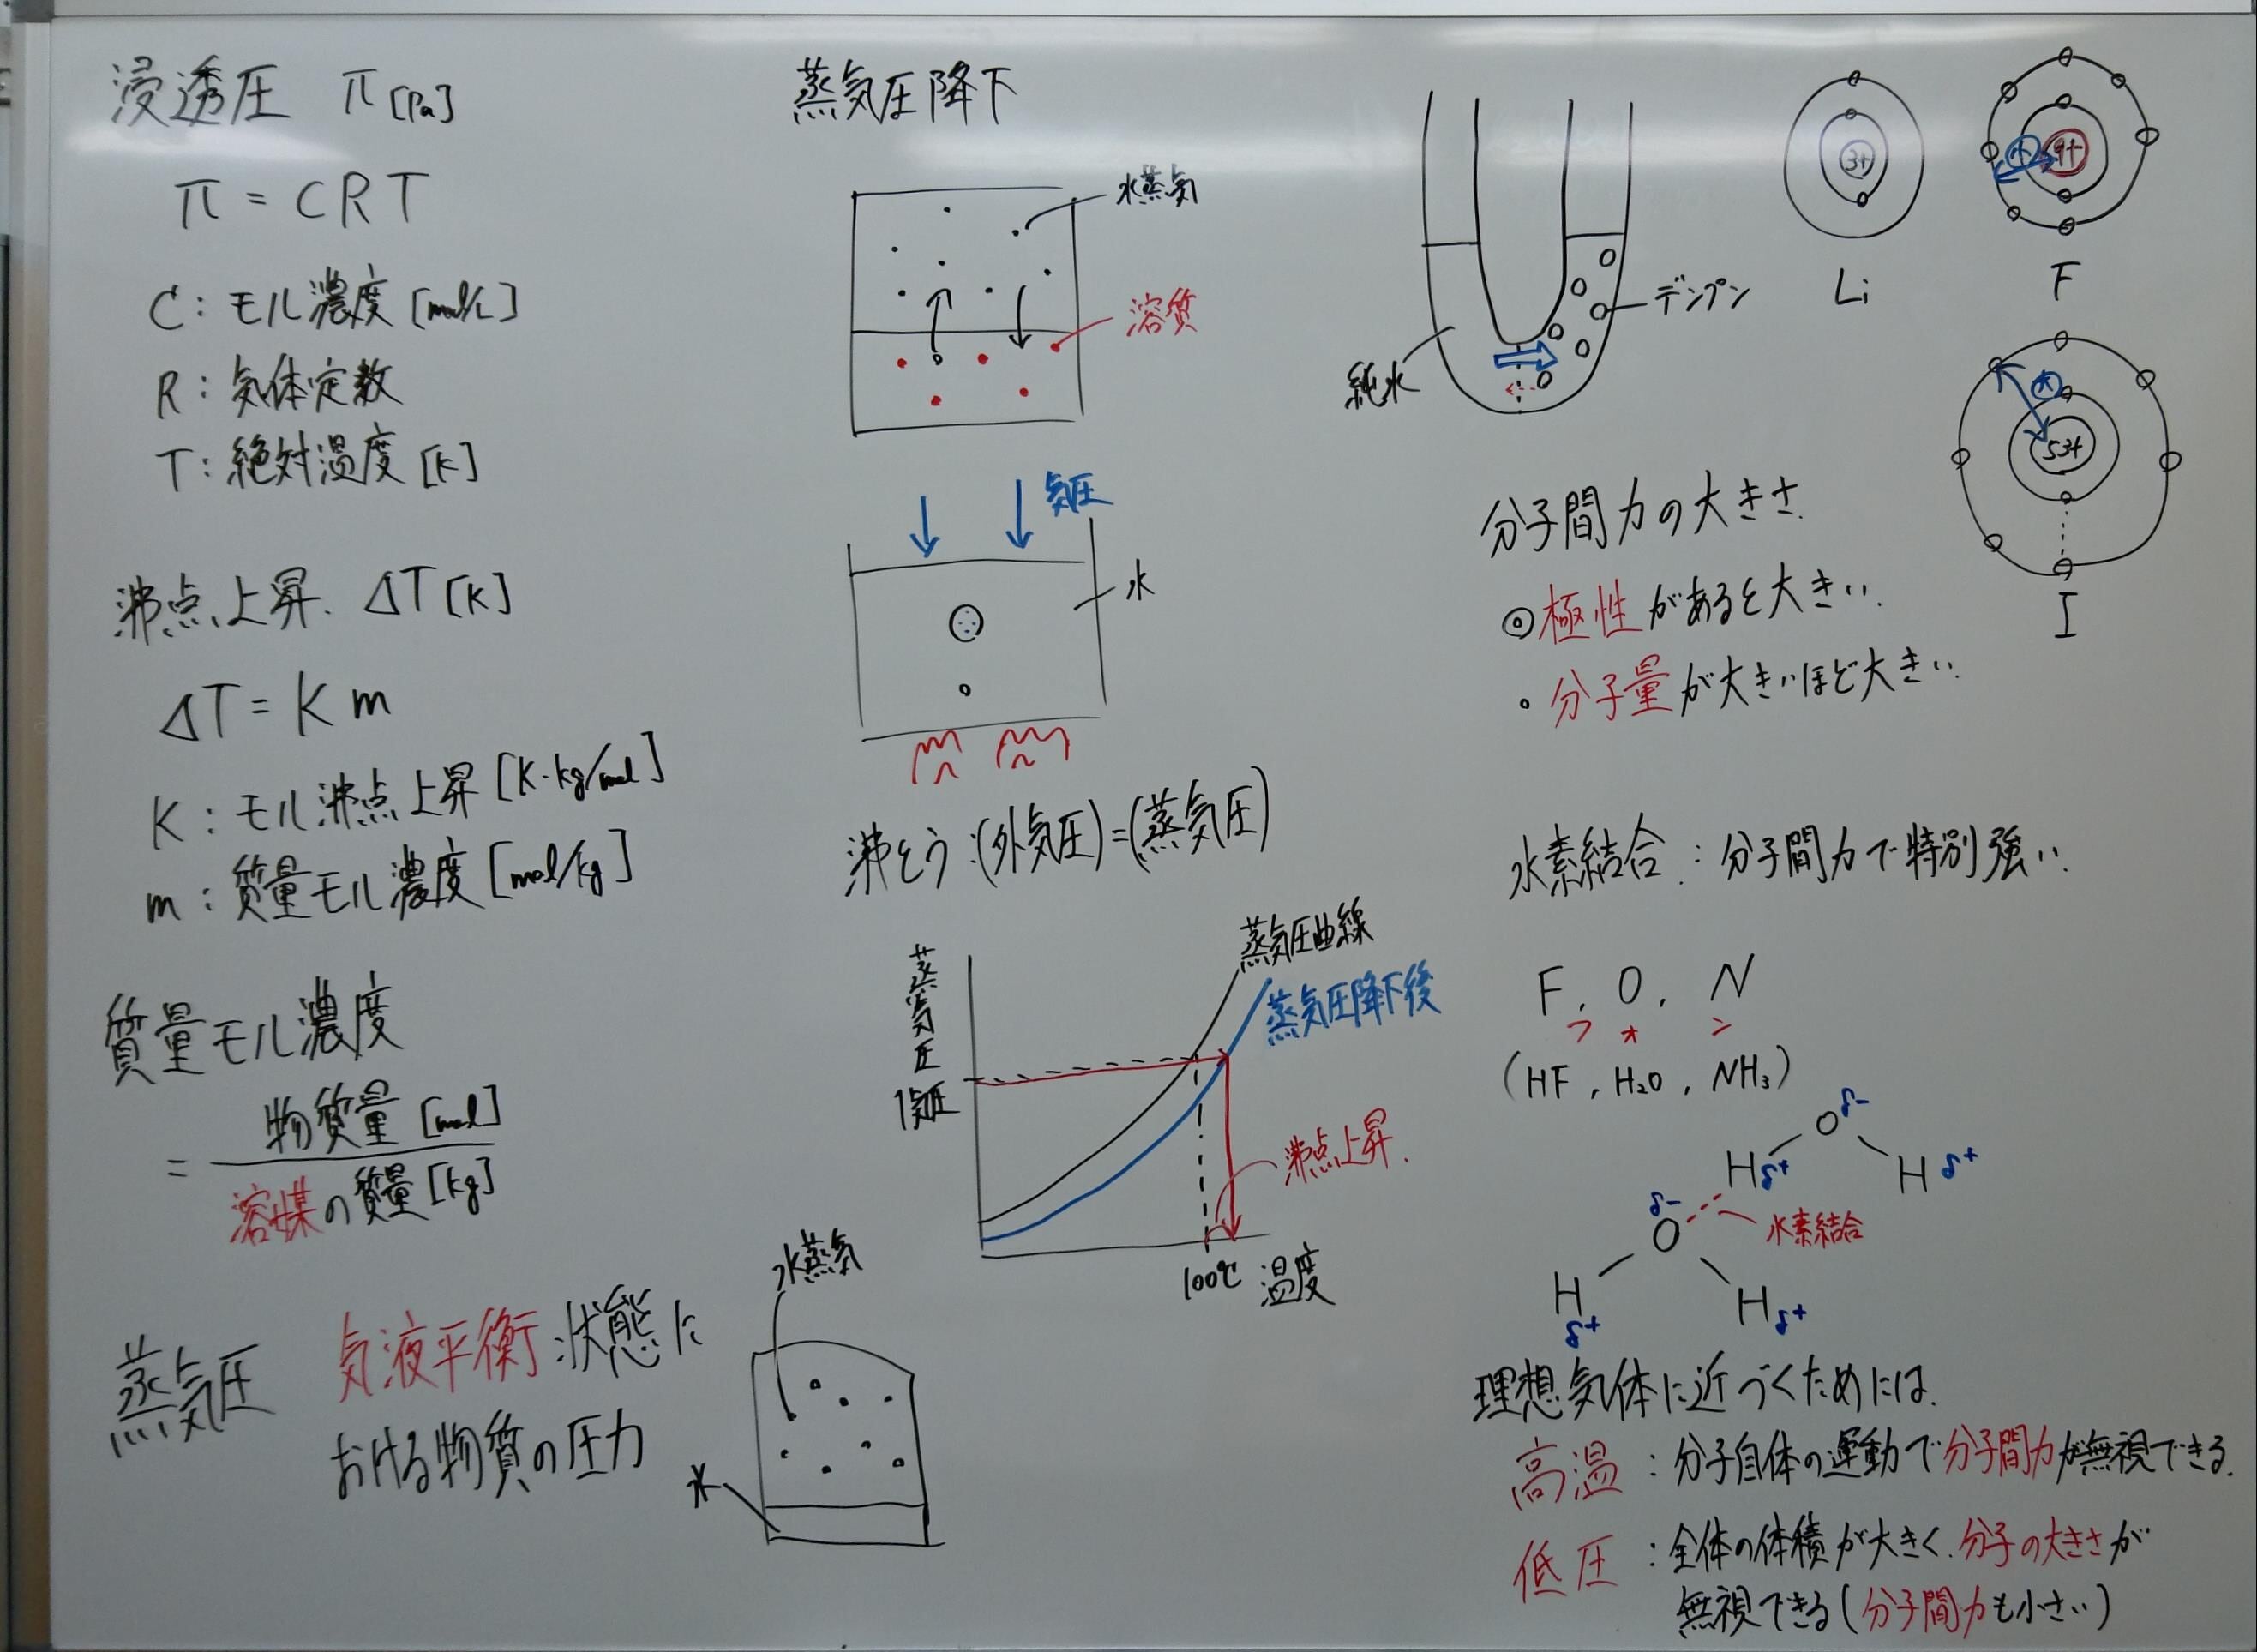 浸透圧 π [Pa]
π = CRT
C：モル濃度 [mol/L]
R：気体定数
T：絶対温度 [K]
沸点上昇. ΔT [K]
ΔT = K m
K：モル沸点上昇 [K・kg/mol]
m：質量モル濃度 [mol/kg]
質量モル濃度
= 物質量 [mol]
溶媒の質量 [kg]
蒸気圧 気液平衡状態に
おける物質の圧力
水蒸気
水
蒸気圧降下
水蒸気
溶質
気圧
水
沸とう：(外気圧)=(蒸気圧)
蒸気圧
蒸気圧曲線
蒸気圧降下後
1気圧
沸点上昇.
100℃ 温度
純水
デンプン
3+
Li
小
9+
F
大
53+
I
分子間力の大きさ
◎極性があると大きい.
・分子量が大きいほど大きい.
水素結合：分子間力で特別強い.
F, O, N
フ オ ン
(HF, H₂O, NH₃)
O δ-
H δ+ H δ+
δ-
O 水素結合
H H
δ+ δ+
理想気体に近づくためには.
高温：分子自体の運動で分子間力が無視できる.
低圧：全体の体積が大きく.分子の大きさが
無視できる(分子間力も小さい)